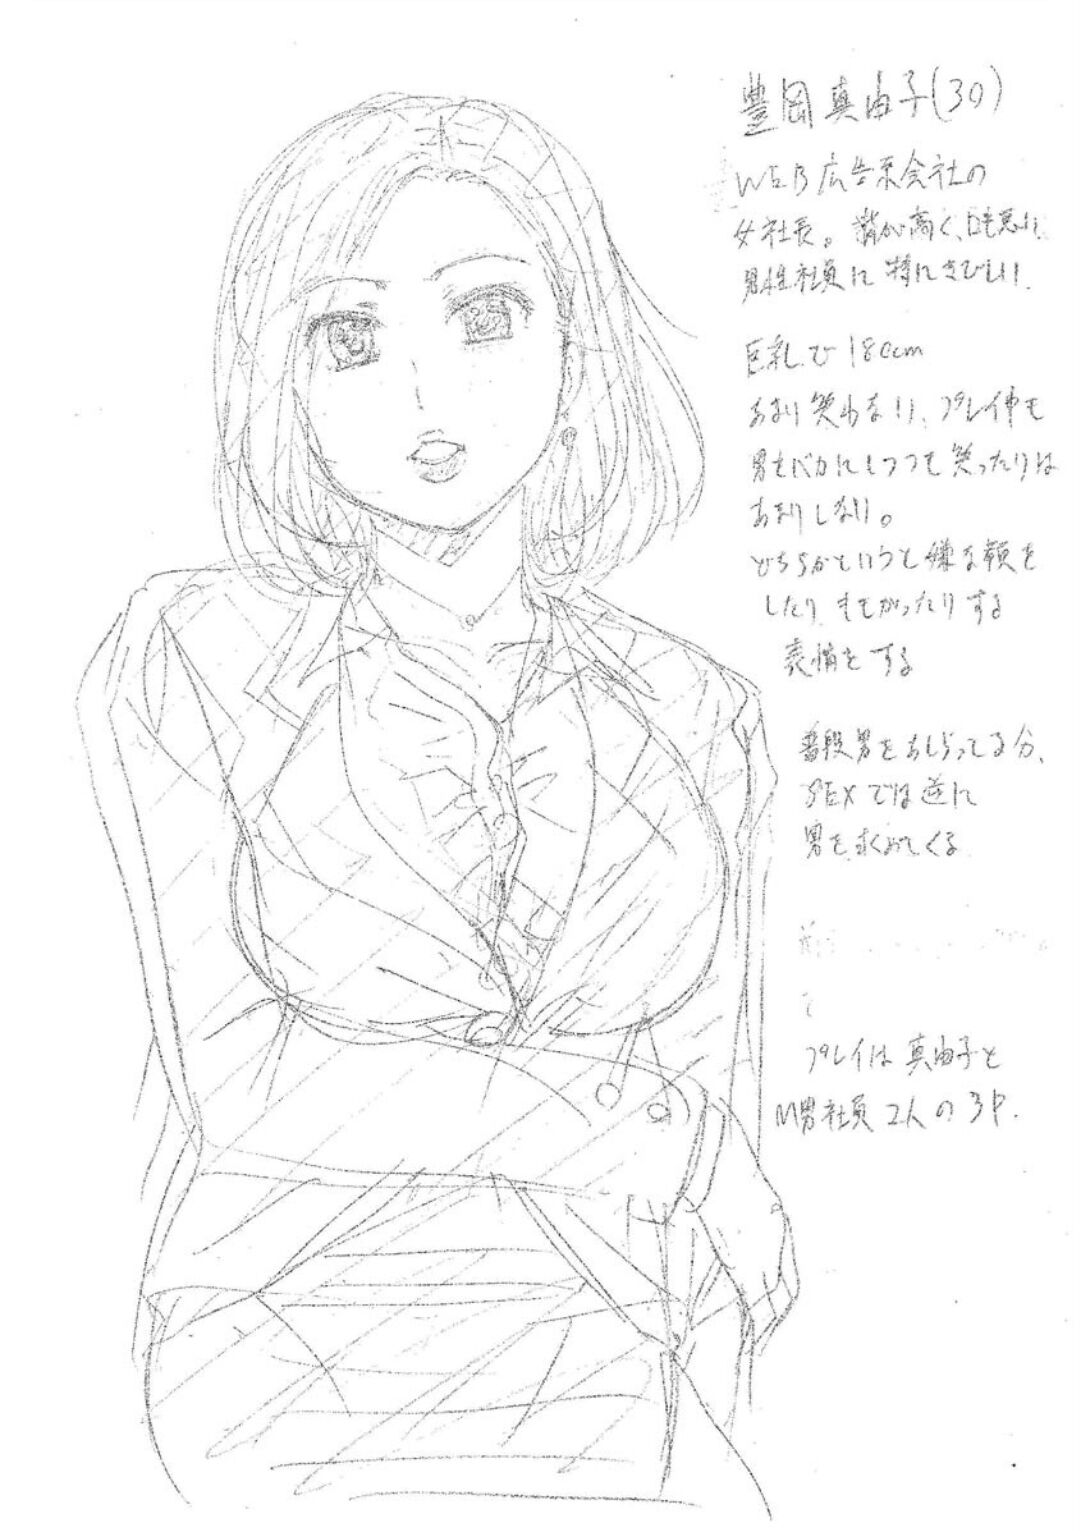 豊岡真由子(30)
WEB広告系会社の
女社長。背が高く、口も悪い。
男性社員に特にきびしい。
巨乳で180cm
あまり笑わない、プレイ中も
男をバカにしつつも笑ったりは
あまりしない。
どちらかというと嫌な顔を
したりもてがったりする
表情をする
普段男をあしらってる分、
SEXでは逆に
男を求めてくる
プレイは真由子と
M男社員2人の3P.